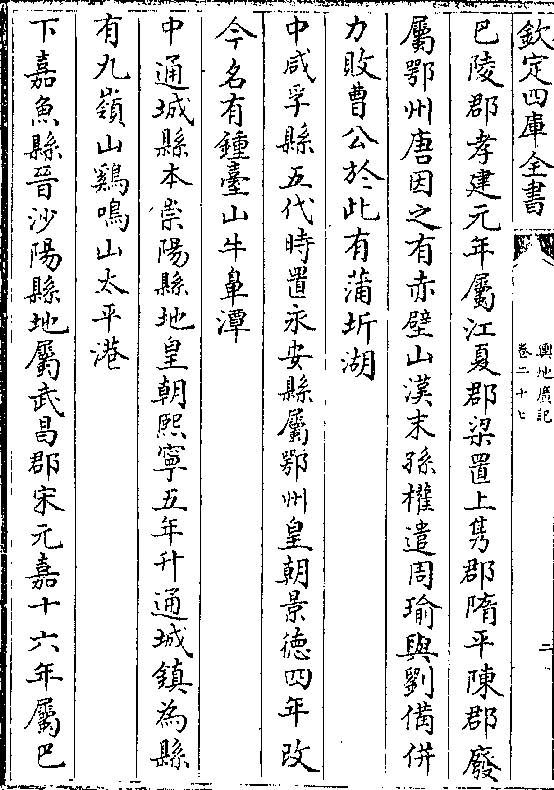 欽定四庫全書
輿地廣記
卷二十七
二
巴陵郡孝建元年屬江夏郡梁置上雋郡隋平陳郡廢
屬鄂州唐因之有赤壁山漢末孫權遣周瑜與劉備併
力敗曹公於此有蒲圻湖
中咸寧縣五代時置永安縣屬鄂州皇朝景德四年改
今名有鍾臺山牛鼻潭
中通城縣本崇陽縣地皇朝熙寧五年升通城鎮為縣
有九嶺山鷄鳴山太平港
下嘉魚縣晉沙陽縣地屬武昌郡宋元嘉十六年屬巴